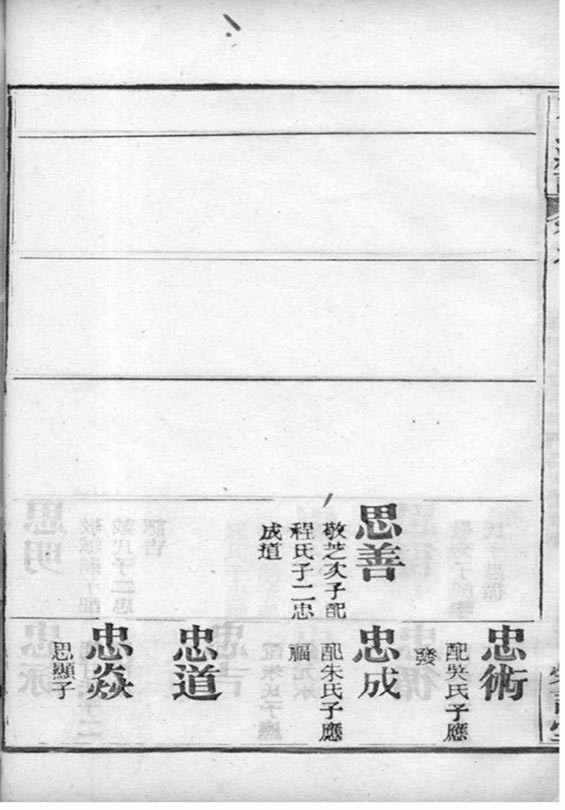 思善
敬芝次子配
程氏子二忠
成道
忠術
配吳氏子應
發
忠成
配朱氏子應
福
忠道
忠焱
思顯子